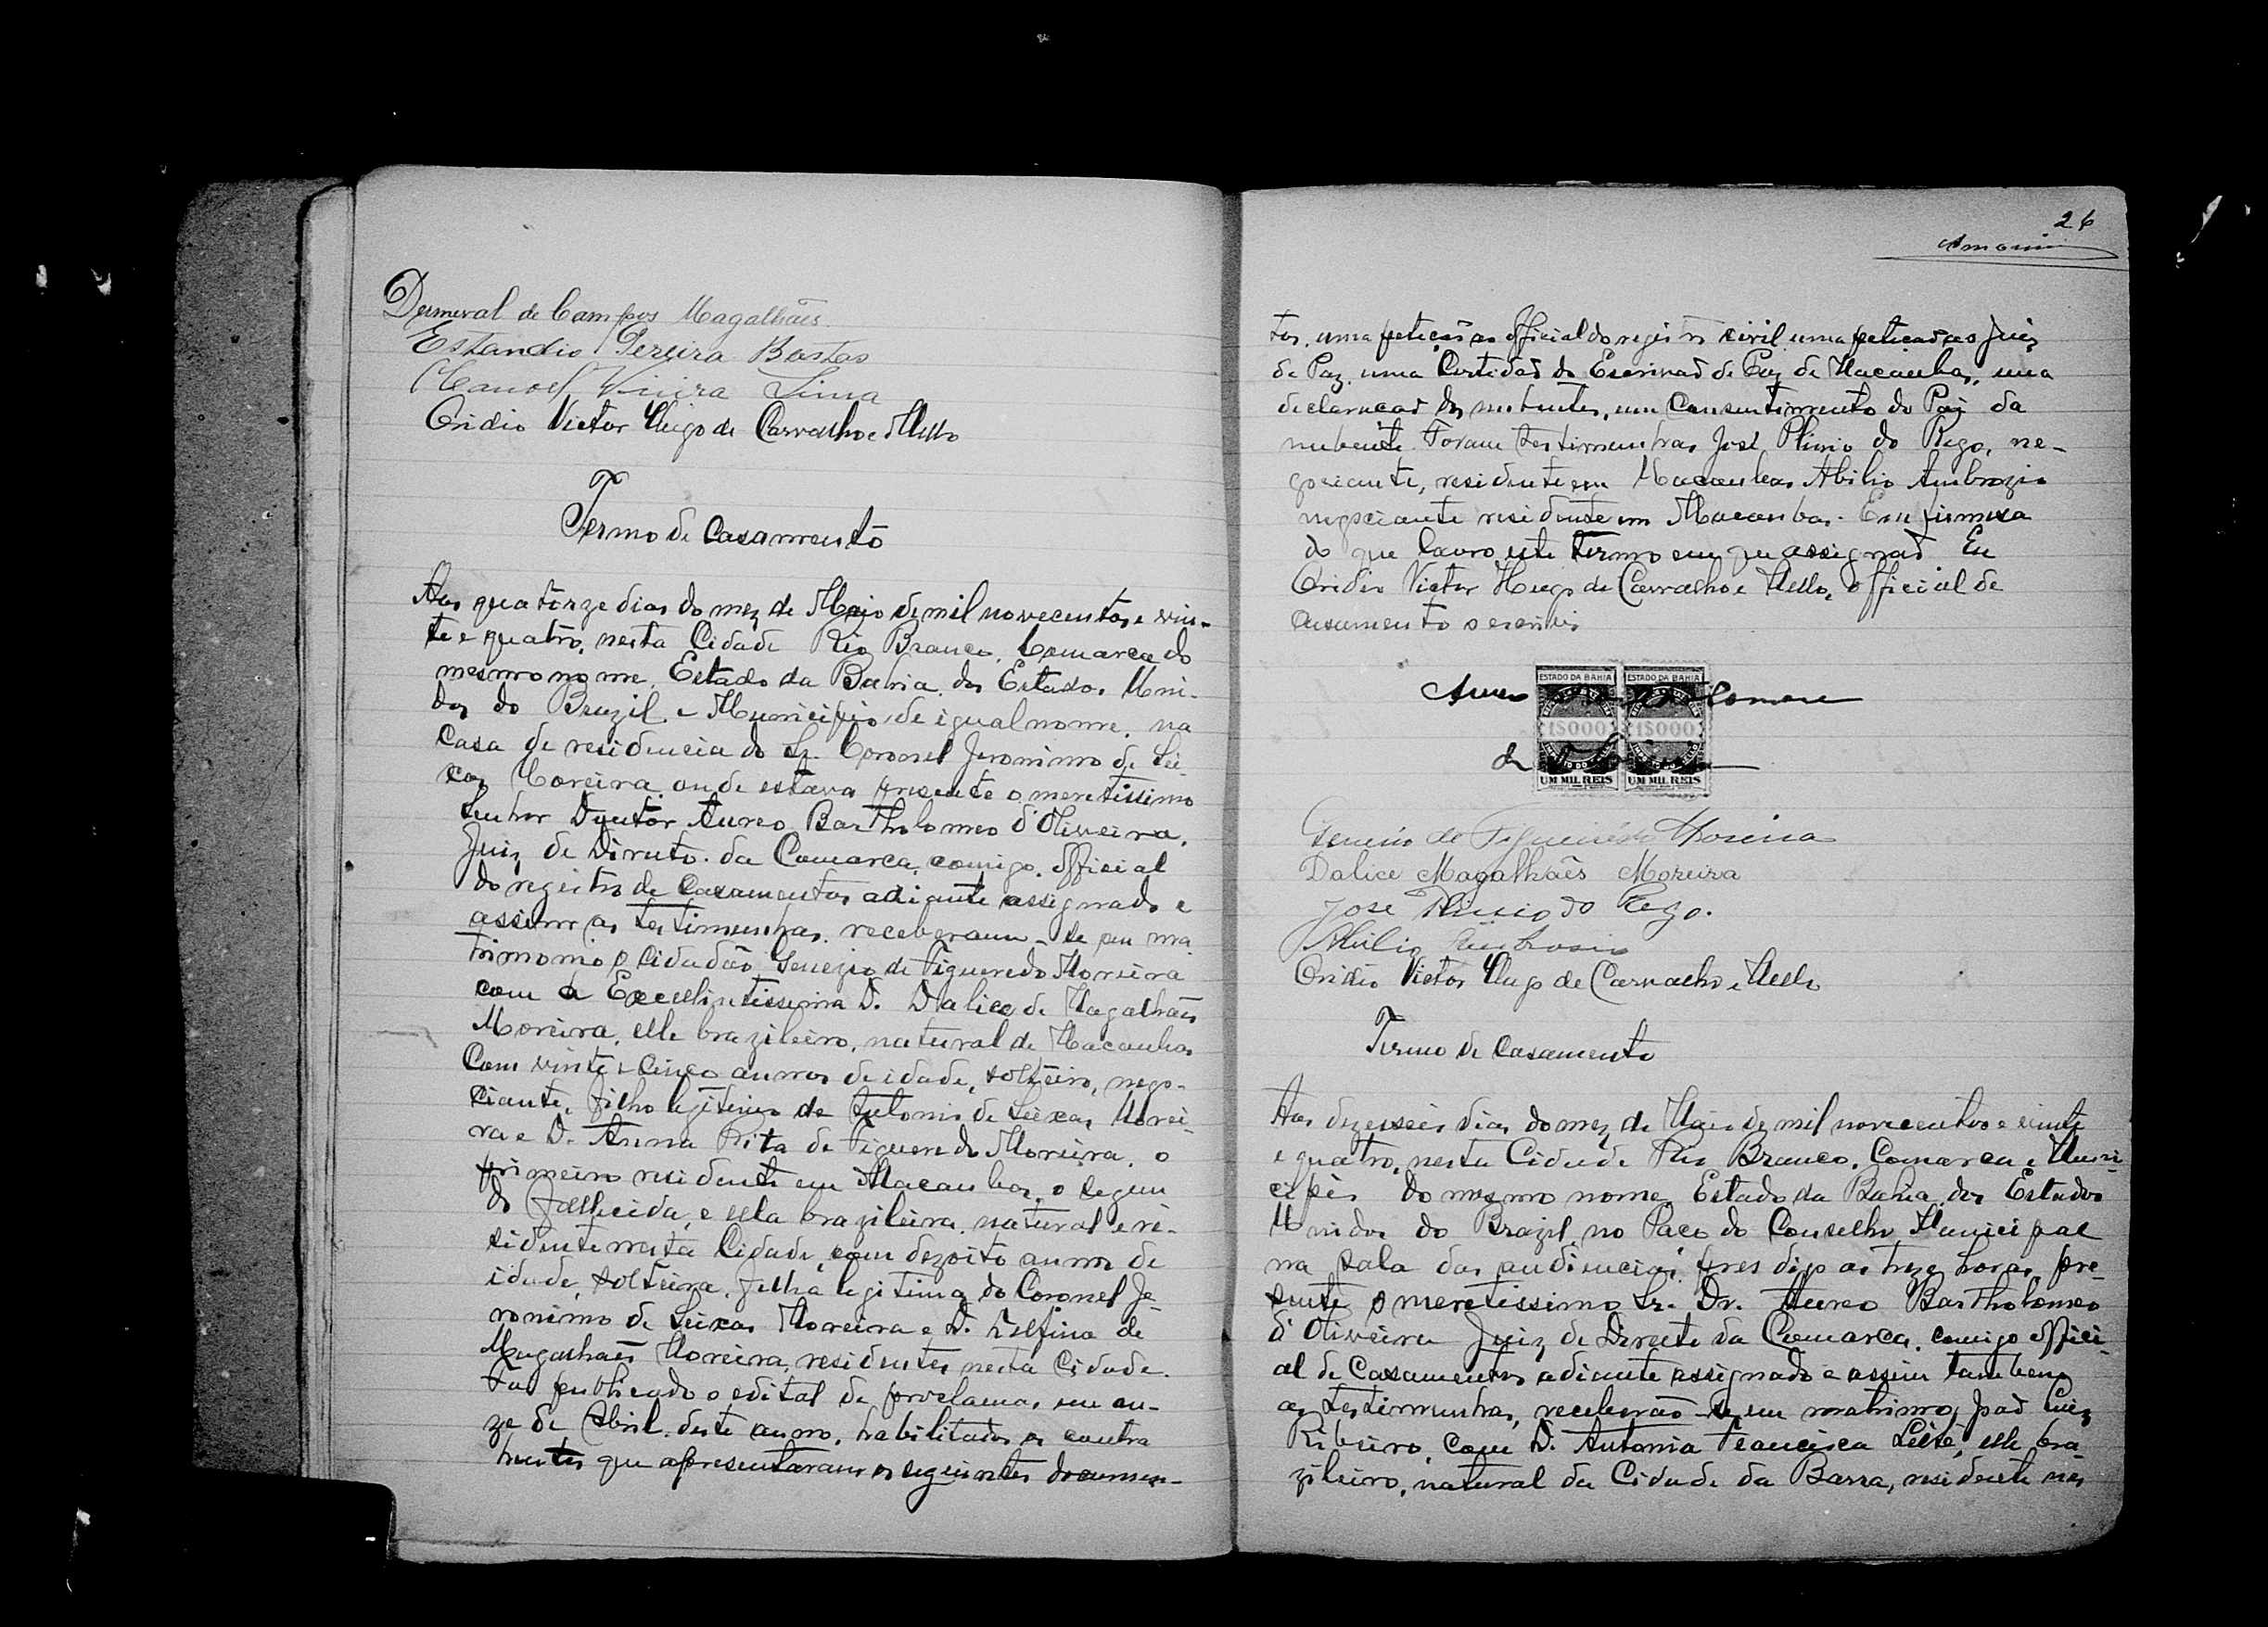 Dermeval de Campos Magalhães
Estandio Pereira Bastos
Manoel Vieira Lima
Ovidio Victor Hugo de Carvalho e Mello
Termo de Casamento
Aos quatorze dias do mez de Maio de mil novecentos e vin-
te e quatro, nesta Cidade Rio Branco, Comarca do
mesmo nome, Estado da Bahia, dos Estados Uni-
dos do Brazil e Municipio de igual nome, na
Casa de residencia do Sr. Coronel Jeronimo de Sei-
xas Moreira onde estava presente o meretissimo
Senhor Doutor Aureo Bartholomeo d'Oliveira,
Juiz de Direito da Comarca, comigo official
do registro de Casamentos adiante assignado e
assim as testimunhas, receberam-se em ma
trimonio o cidadão Genezio de Figueredo Moreira
com a Excellentissima D. Dalice de Magalhães
Moreira, elle brazileiro, natural de Macaubas
Com vinte e cinco annos de idade, solteiro, nego-
ciante, filho legitimo de Antonio de Seixas Morei-
ra e D. Anna Rita de Figueredo Moreira, o
primeiro residente em Macaubas, o segun
do fallecida, e ella brazileira, natural e re-
sidente nesta Cidade, com dezoito annos de
idade, solteira, filha legitima do Coronel Je-
ronimo de Seixas Moreira e D. Delfina de
Magalhães Moreira, residentes nesta Cidade.
Foi publicado o edital de proclamas em on-
ze de Abril deste anno, habilitados os contra
hentes que apresentaram os seguintes documen-
26
Amorim
tos, uma petição ao official do registro civil uma petição ao Juiz
de Paz, uma Certidão do Escrivão de Paz de Macaubas, uma
declaração dos nubentes, um Consentimento do Pai da
nubente. Foram testimunhas José Plinio do Rego, ne-
gociante, residente em Macaubas Abilio Ambrozio
negociante residente em Macaubas. Em firmeza
do que lavro este termo em que assignão Eu
Ovidio Victor Hugo de Carvalho e Mello, official de
casamento o escrevi
Aureo Bartholomeu
de Oliveira
ESTADO DA BAHIA ESTADO DA BAHIA
1$000 1$000
UM MIL REIS UM MIL REIS
Genesio de Figueirêdo Moreira
Dalice Magalhães Moreira
José Plinio do Rego.
Abilio Ambrosio
Ovidio Victor Hugo de Carvalho e Mello
Termo de Casamento
Aos dezesseis dias do mez de Maio de mil novecentos e vinte
e quatro, nesta Cidade Rio Branco, Comarca e Muni-
cipio do mesmo nome, Estado da Bahia, dos Estados
Unidos do Brazil, no Paço do Conselho Municipal
na sala das audiencias, pres digo as treze horas, pre-
sente o meretissimo Sr. Dr. Aureo Bartholomeo
d'Oliveira Juiz de Direito da Comarca, comigo offici-
al de Casamentos adiante assignado e assim tambem
as testimunhas, receberão-se em matrimo, João Luiz
Ribeiro, com D. Antonia Francisca Leite, elle bra-
zileiro, natural da Cidade da Barra, residente nes